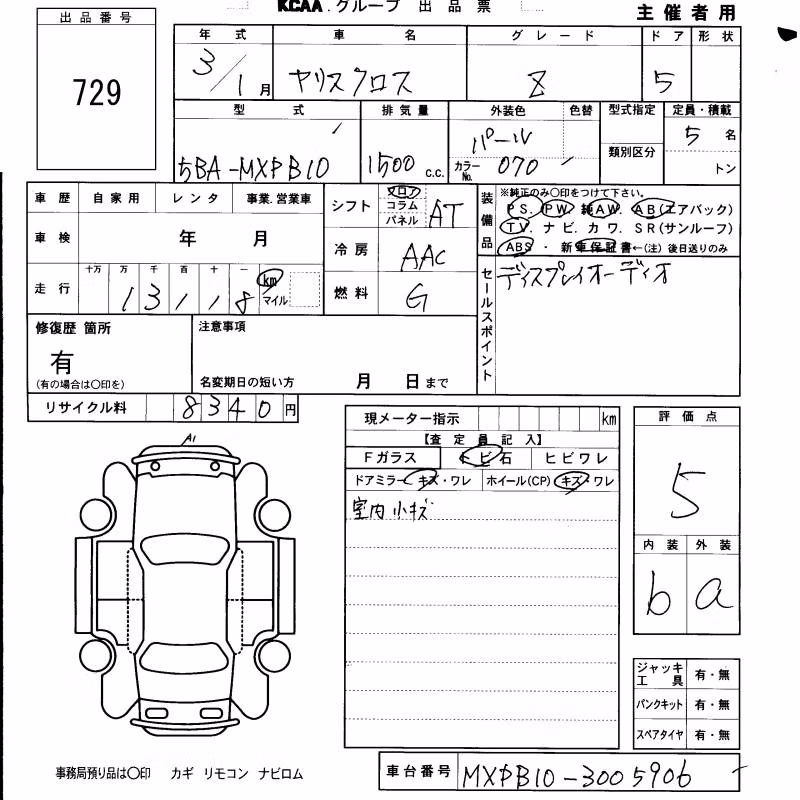 KCAA.グループ 出品票
主催者用
出品番号
729
年式 車名 グレード ドア 形状
3/1月 ヤリスクロス Z 5
型式 排気量 外装色 色替 型式指定 定員・積載
5BA-MXPB10 1500 c.c. パール カラーNo. 070 類別区分 5名
トン
車歴 自家用 レンタ 事業.営業車
車検 年 月
走行 十万 万 千 百 十 一
1 3 1 1 8 km
マイル
シフト フロア コラム パネル AT
冷房 AAC
燃料 G
装備品
※純正のみ〇印をつけて下さい。
PS. PW. 純AW. AB(エアバック)
TV. ナビ. カワ. SR(サンルーフ)
ABS ・ 新車保証書←(注)後日送りのみ
セールスポイント
ディスプレイオーディオ
修復歴 箇所
有
(有の場合は〇印を)
注意事項
名変期日の短い方 月 日まで
リサイクル料 8340円
現メーター指示 km
【査定員記入】
Fガラス トビ石 ヒビワレ
ドアミラー キズ・ワレ ホイール(CP) キズ・ワレ
室内小キズ
評価点
5
内装 外装
b a
A1
ジャッキ工具 有・無
パンクキット 有・無
スペアタイヤ 有・無
事務局預り品は〇印 カギ リモコン ナビロム
車台番号 MXPB10-3005906